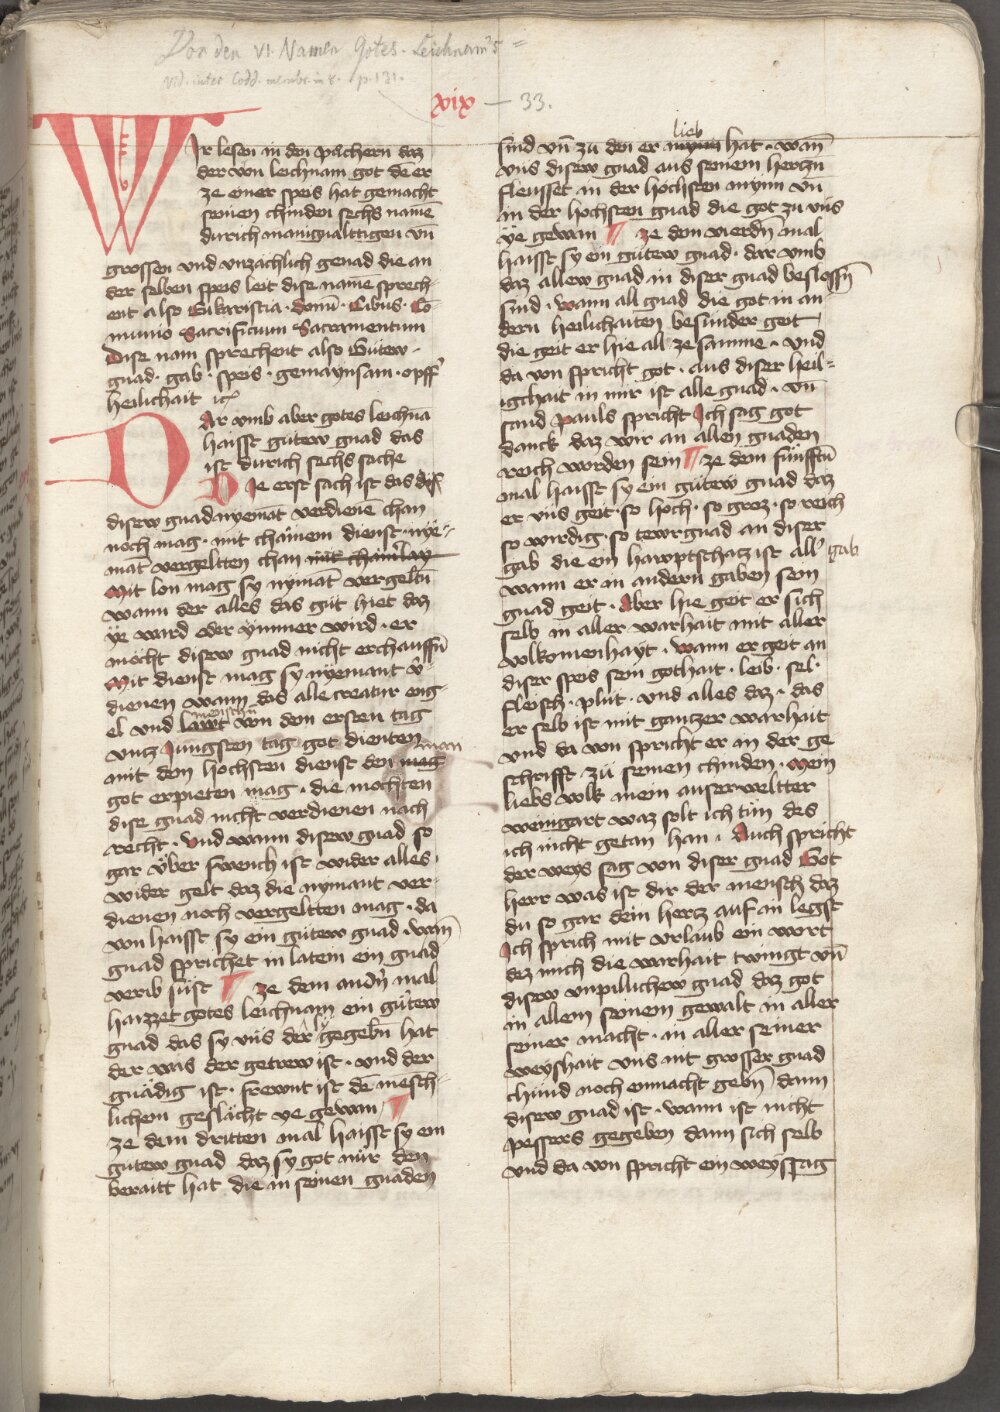 Von den VI. Namen Gotes Leichnam's =
Vid. inter Codd. membr. in 8. p. 131.
xix — 33.
Wir lesen in den puͤchern daz
der von leichnam got dē er
ze einer speis hat gemacht
seinen chinden sechs namē
durich manigualttigen vn̄
grossen vnd vnzachlich genad die an
der selben speis leit dise namē sprech-
ent also Eukaristia · donū · Cibus · Co-
munio Sacrificium Sacramentum
Dise nam sprechent also Gutew
gnad · gab · speis · gemaynsam · opffr
heilichait ic͛
DAr vmb aber gotes leichna
haisst gutew gnad das
ist durich sechs sache
Die erst sach ist das
disew gnad nyemat verdienē chan
noch mag · mit chainem dienst · nye-
mat vergeltten chan mit chainrlay
Mit lon mag sy nymāt vergeltn̄
wann der alles das gut hiet daz
ÿe ward oder ymmer wird · er
möcht disew gnad nicht erchauffn̄
Mit dienst mag sy nyemant v͛
dienen wann das alle creatur eng-
el vnd lawt menschn von dem ersten tag
vncz Jungsten tag got dienten
mit dem höchsten dienst den mag man
got erpieten mag · die mochten
dise gnad nicht verdienen nach
recht · Vnd wann disew gnad so
gar über swench ist wider alles
wider gelt daz die nymant ver-
dienen noch vergeltten mag · da
von haisst sy ein gutew gnad · wan̄
gnad sprichet in latein ein gnad
verib süst ¶ ze dem andn̄ mal
haizzet gotes leichnam ein gutew
gnad das sy vns der gegebn̄ hat
der was der getrew ist · vnd der
gnädig ist · frewnt ist dē mēsch-
lichem geslächt ye gewan ¶
ze dem dritten mal haisst sy ein
gutew gnad daz sy got nur den
beraitt hat die in seinen gnaden
sind vn̄ zu den er mynn lieb hat · wan̄
vns disew gnad aus seinem herczn
fleusset in der höchsten mynn vn̄
in der höchsten gnad die got zu vns
ÿe gewan ¶ ze dem vierdn̄ mal
haisst sy ein gutew gnad · dar vmb
daz allew gnad in diser gnad beslossn̄
sind · wann all gnad die got in an
dern heilichaiten besunder geit
die geit er hie all ze samme · vnd
da von spricht got · aus diser heil=
igchait in mir ist alle gnad · vn̄
sand Pauls spricht Ich sag got
danck daz wir an allen gnaden
reich worden sein ¶ ze dem fünfftn̄
mal haisst sy ein gutew gnad daz
er vns geit · so hoch · so groz · so reich
so wirdig · so tewr gnad an diser
gab die ein hawptschacz ist all͛ gab
wann er in andern gaben sein
gnad geit · Aber hie geit er sich
selb in aller warhait mit aller
volkomenhayt · wann er geit an
diser speis sein gothait · leib · sel ·
fleisch · plut · vnd alles daz · das
er selb ist mit gantzer warhait
vnd da von spricht er in der ge
schrifft zu seinen chinden · Mein
liebs volk mein auserweltter
weingart waz solt ich tun des
ich nicht getan han · Auch spricht
der weys sag von diser gnad Got
herr was ist dir der mensch daz
du so gar dein hercz auf in legst
Ich sprich mit vrlaub ein wort
dez mich die warhait twingt vn̄
disew vnpillichew gnad daz got
in allem seinem gewalt in aller
seiner macht · in aller seiner
weyshait vns nit grosser gnad
chund noch enmacht gebn̄ dann
disew gnad ist · wann ist nicht
pessers gegeben dann sich selb
vnd da von spricht ein weyssag